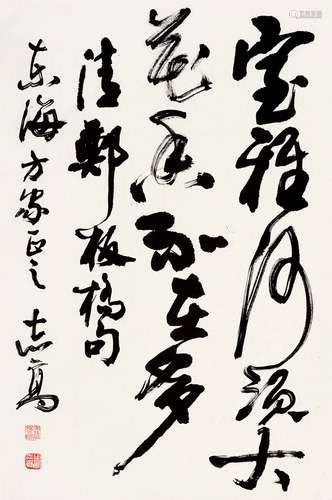 室雅何须大
花香不在多
清郑板桥句
东海方家正之 志高